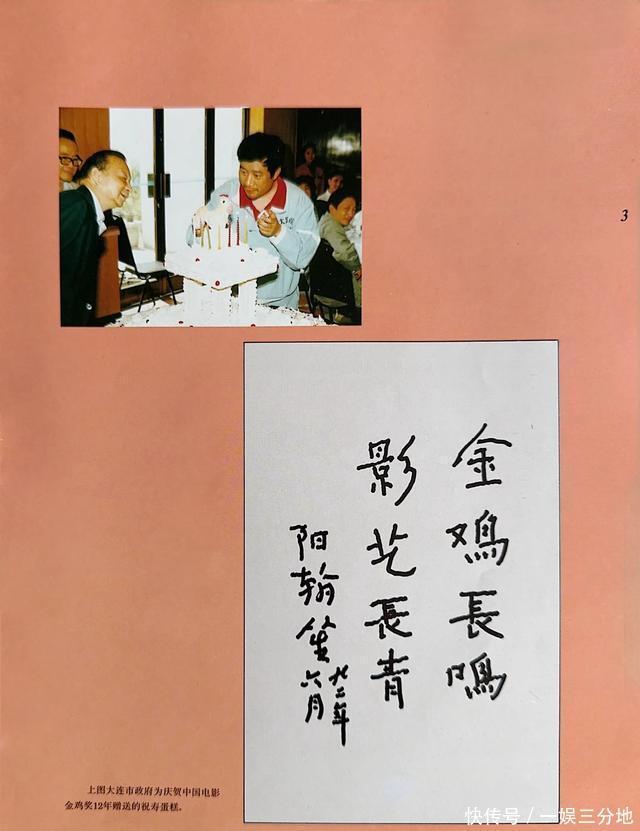 3
金鸡長鳴
影艺長青
阳翰笙
九二年
六月
上图大连市政府为庆贺中国电影
金鸡奖12年赠送的祝寿蛋糕。
快传号/一娱三分地